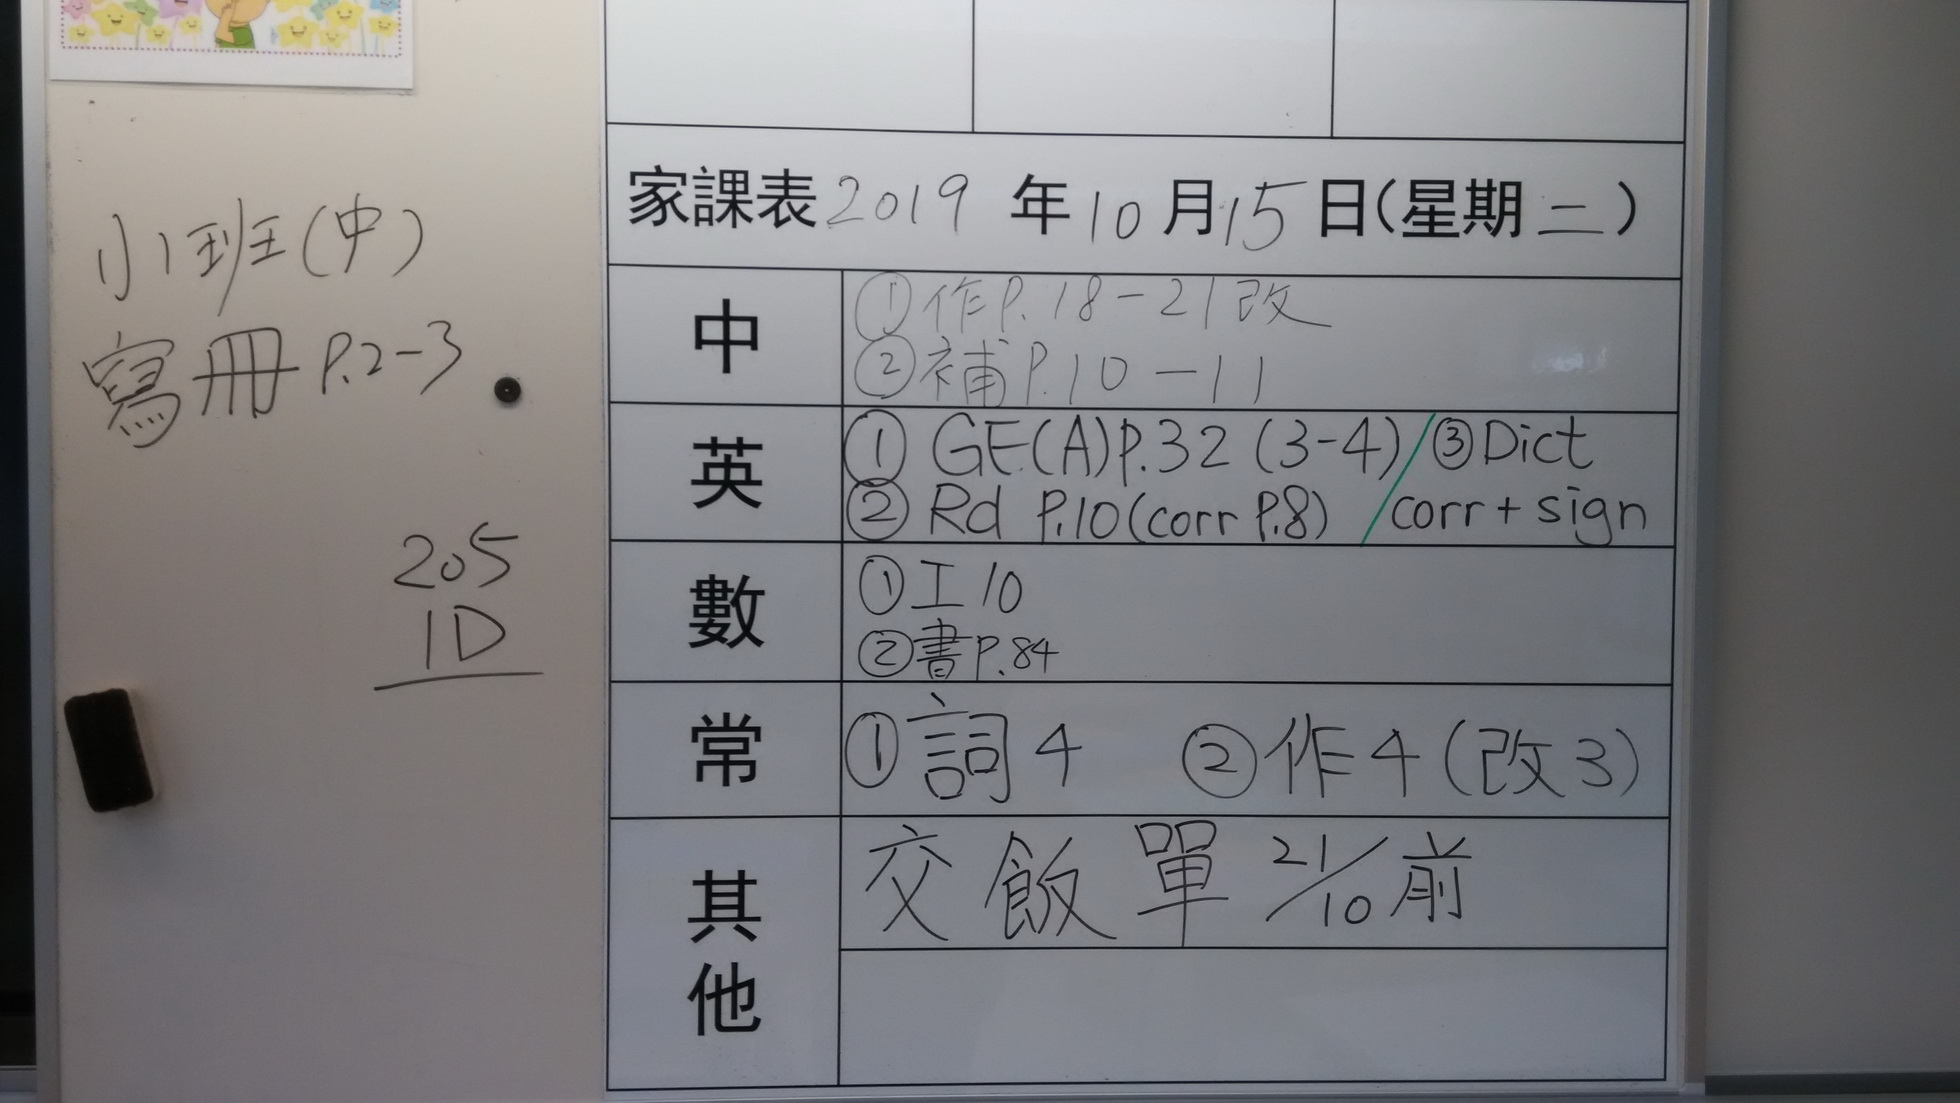 小班(中)
寫冊 P.2-3
205
1D
家課表 2019 年 10 月 15 日(星期二)
中
①作P.18-21改
②補P.10-11
英
① GE(A)P.32 (3-4) / ③Dict
② Rd P.10(corr P.8) / corr + sign
數
①工10
②書P.84
常
①詞4 ②作4(改3)
其他
交飯單 21/10前